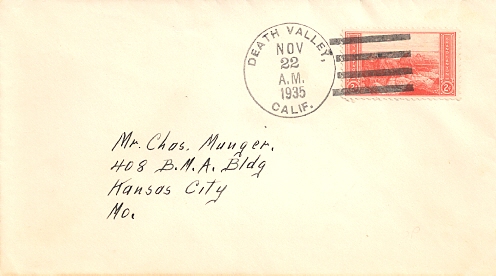 DEATH VALLEY,
NOV
22
A.M.
1935
CALIF.
2¢ 2¢
Mr. Chas. Munger.
408 B.M.A. Bldg
Kansas City
Mo.